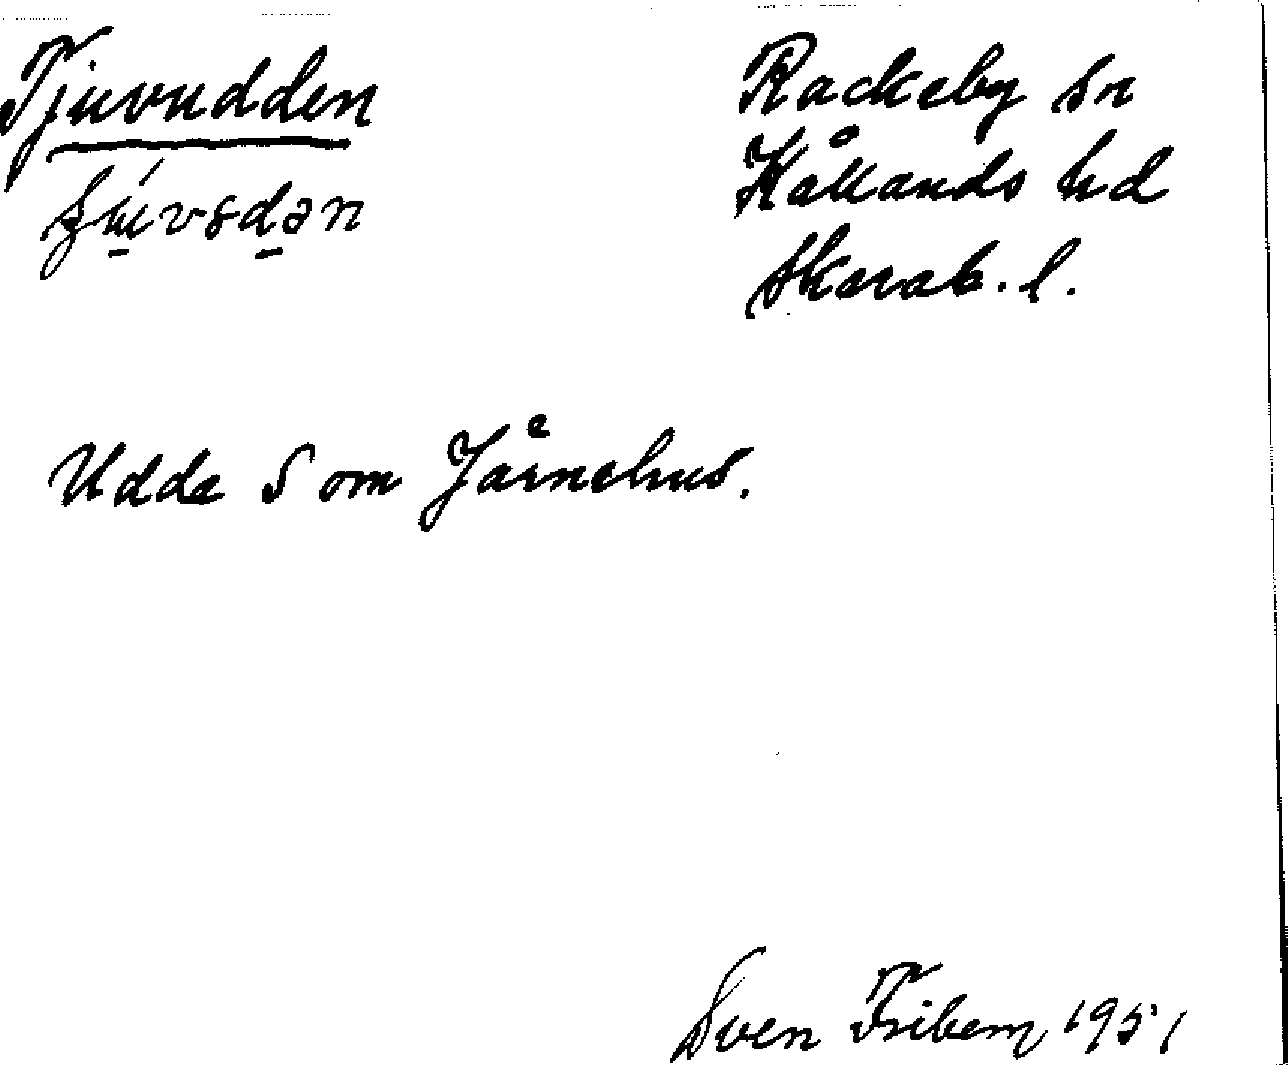 Tjuvudden
Rackeby sn
Kållands hd
Skarab. l.
Udde S om Jårnehus.
Sven Fribem 1951